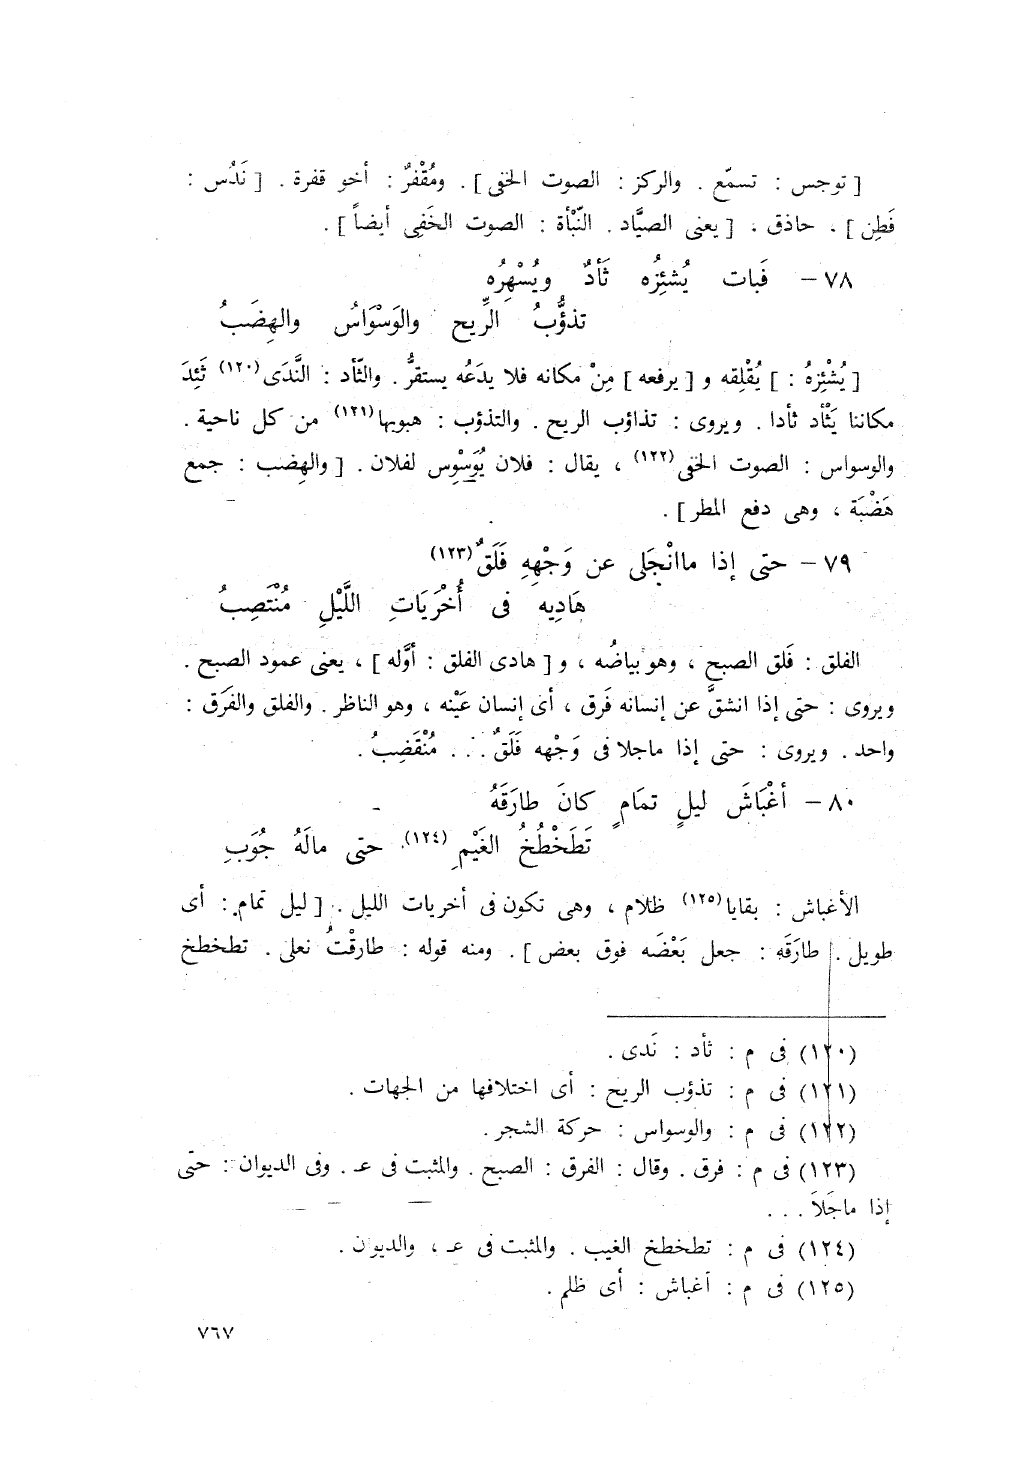 [ توجس : تسمّع . والركز : الصوت الخفى ] . ومُقْفرٌ : أخو قفرة . [ نَدُس :
فَطِن ] ، حاذق ، [ يعنى الصيَّاد . النّبْأة : الصوت الخَفِى أيضاً ] .
٧٨ – فَبات يُشئِزُه ثَأدٌ ويُسْهِرُه
تذؤُّبُ الرِّيح والوَسْوَاسُ والهِضَبُ
[ يُشْئِزهُ : ] يُقْلِقه و [ يرفعه ] مِنْ مكانه فلا يدَعُه يستقرُّ . والثّأد : النَّدَى(١٢٠) ثَئِدَ
مكاننا يَثْأد ثأدا . ويروى : تذاؤب الريح . والتذؤب : هبوبها(١٢١) من كل ناحية .
والوسواس : الصوت الخفى(١٢٢) ، يقال : فلان يُوَسْوِس لفلان . [ والهِضب : جمع
هَضْبَة ، وهى دفع المطر ] .
٧٩ – حتى إذا ماانْجَلى عن وَجْهِهِ فَلَقٌ(١٢٣)
هَادِيه فى أُخْرَيَاتِ اللَّيْلِ مُنْتَصِبُ
الفلق : فَلق الصبح ، وهو بياضُه ، و [ هادى الفلق : أوَّله ] ، يعنى عمود الصبح .
ويروى : حتى إذا انشقَّ عن إنسانه فَرق ، أى إنسان عَيْنه ، وهو الناظر . والفلق والفَرَق :
واحد . ويروى : حتى إذا ماجلا فى وَجْهه فَلَقٌ . . . مُنْقَضِبُ .
٨٠ – أغْبَاشَ ليلٍ تمَامٍ كانَ طارَقَهُ
تَطَخْطُخُ الغَيْمِ(١٢٤) حتى مالَهُ جُوَبِ
الأغباش : بقايا(١٢٥) ظلام ، وهى تكون فى أخريات الليل . [ ليل تمام : أى
طويل . طارَقَه : جعل بَعْضَه فوق بعض ] . ومنه قوله : طارقْتُ نعلى . تطخطخ
(١٢٠) فى م : ثأد : نَدى .
(١٢١) فى م : تذؤب الريح : أى اختلافها من الجهات .
(١٢٢) فى م : والوسواس : حركة الشجر .
(١٢٣) فى م : فرق . وقال : الفرق : الصبح . والمثبت فى عـ . وفى الديوان : حتى
إذا ماجَلاَ . . .
(١٢٤) فى م : تطخطخ الغيب . والمثبت فى عـ ، والديوان .
(١٢٥) فى م : أغباش : أى ظلم .
٧٦٧